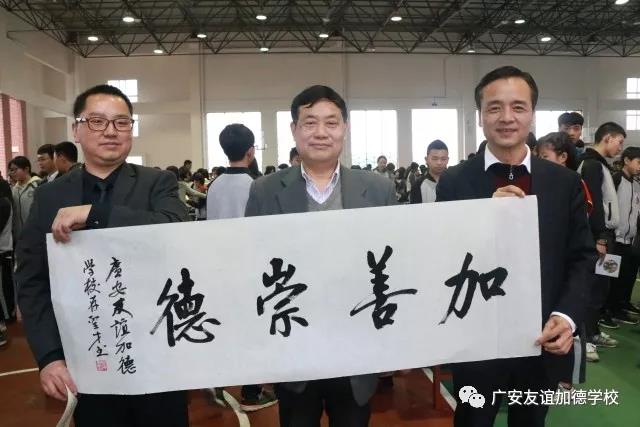 加善崇德
廣安友誼加德
学校
广安友谊加德学校